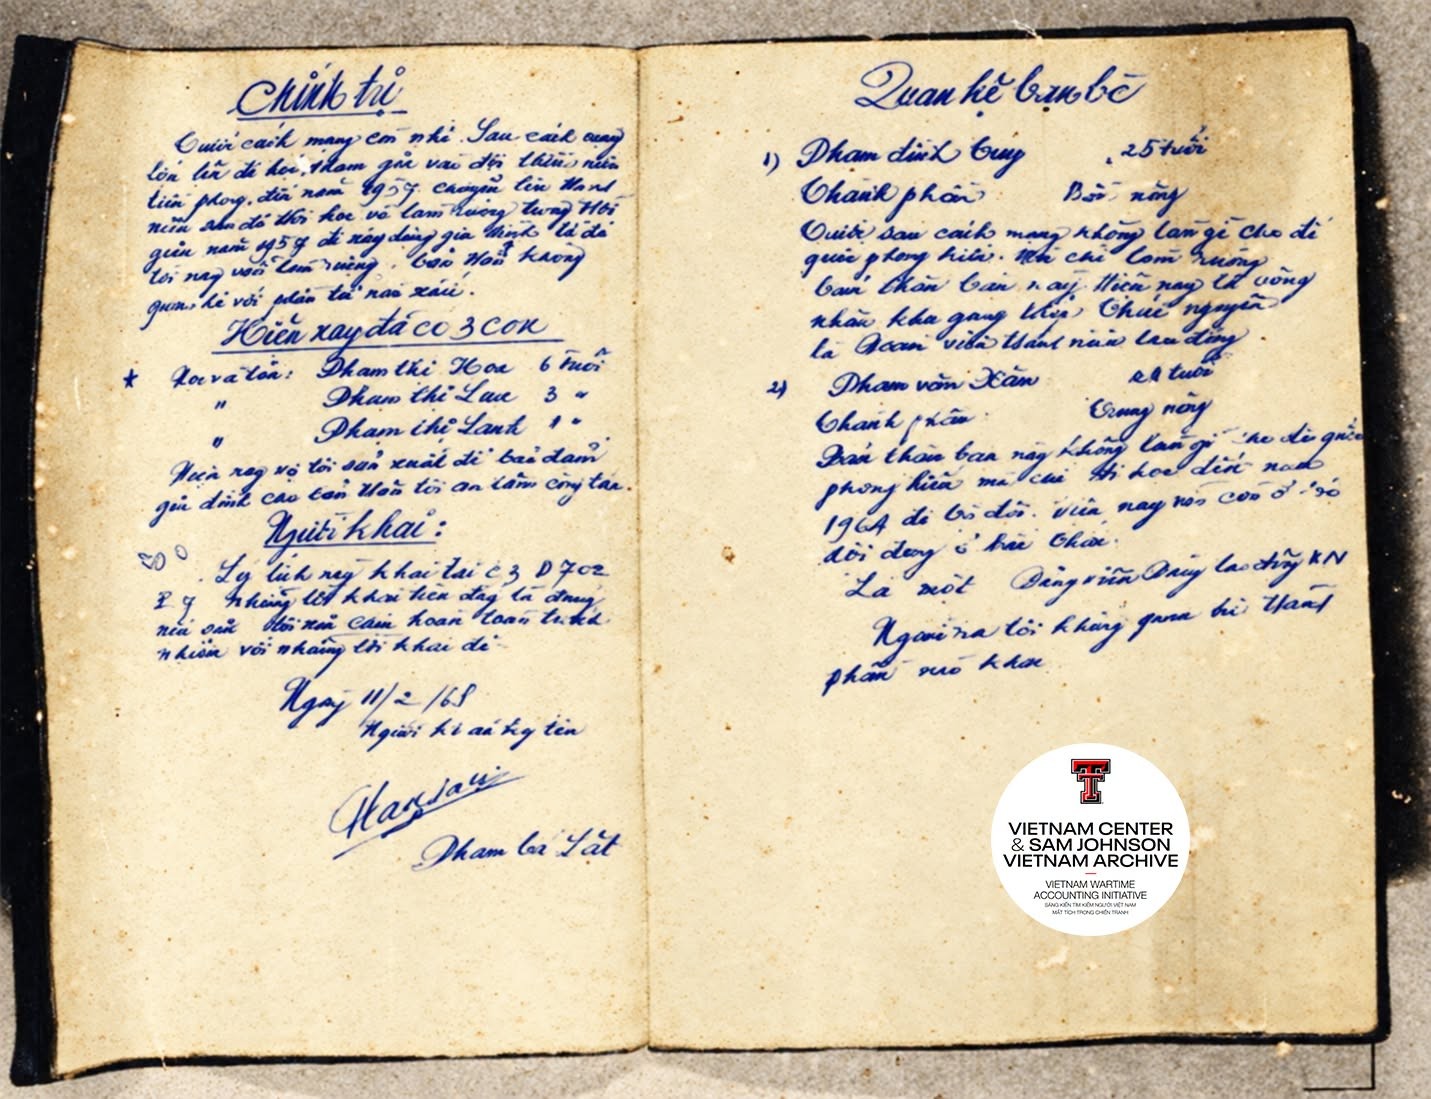 Chính trị
Trước cách mạng còn nhỏ. Sau cách mạng
lớn lên đi học, tham gia vào đội thiếu niên
tiền phong. đến năm 1957. chuyển lên thanh
niên sau đó thôi học về làm ruộng trong
năm 1957 đi xây dựng gia đình là đó
tới nay vẫn làm ruộng. bản thân không
quan hệ với phần tử nào xấu.
Hiện nay đã có 3 con
Họ và tên: Phạm thị Hoa 6 tuổi
" Phạm thị Lan 3 "
" Phạm thị Lanh 1 "
Hiện nay vợ tôi sản xuất để bảo đảm
gia đình cho bản thân tôi an tâm công tác.
Người khai:
Lý lịch này khai tại c3 D702
những lời khai trên đây là đúng
nếu sai tôi xin cam hoàn toàn trách
nhiệm với những lời khai đó
Ngày 11/2/68
Người khai ký tên
Phạm bá Lắt
Quan hệ bạn bè
1) Phạm đình Truy 25 tuổi
Thành phần Bần nông
Trước sau cách mạng không làm gì cho đế
quốc phong kiến. mà chỉ làm ruộng
bản thân bạn này. Hiện nay là công
nhân khu gang thép Thái nguyên
là Đoàn viên thanh niên lao động
2) Phạm văn Xân tuổi
Thành phần Trung nông
Bản thân bạn này không làm gì cho đế quốc
phong kiến mà chỉ đi học đến năm
1964 đi bộ đội. hiện nay vẫn còn ở bộ
đội đóng ở Thái.
Là một Đảng viên Đảng lao động VN
Ngoài ra tôi không quan hệ thành
phần nào khác
VIETNAM CENTER
& SAM JOHNSON
VIETNAM ARCHIVE
VIETNAM WARTIME
ACCOUNTING INITIATIVE
SÁNG KIẾN TÌM KIẾM NGƯỜI VIỆT NAM
MẤT TÍCH TRONG CHIẾN TRANH